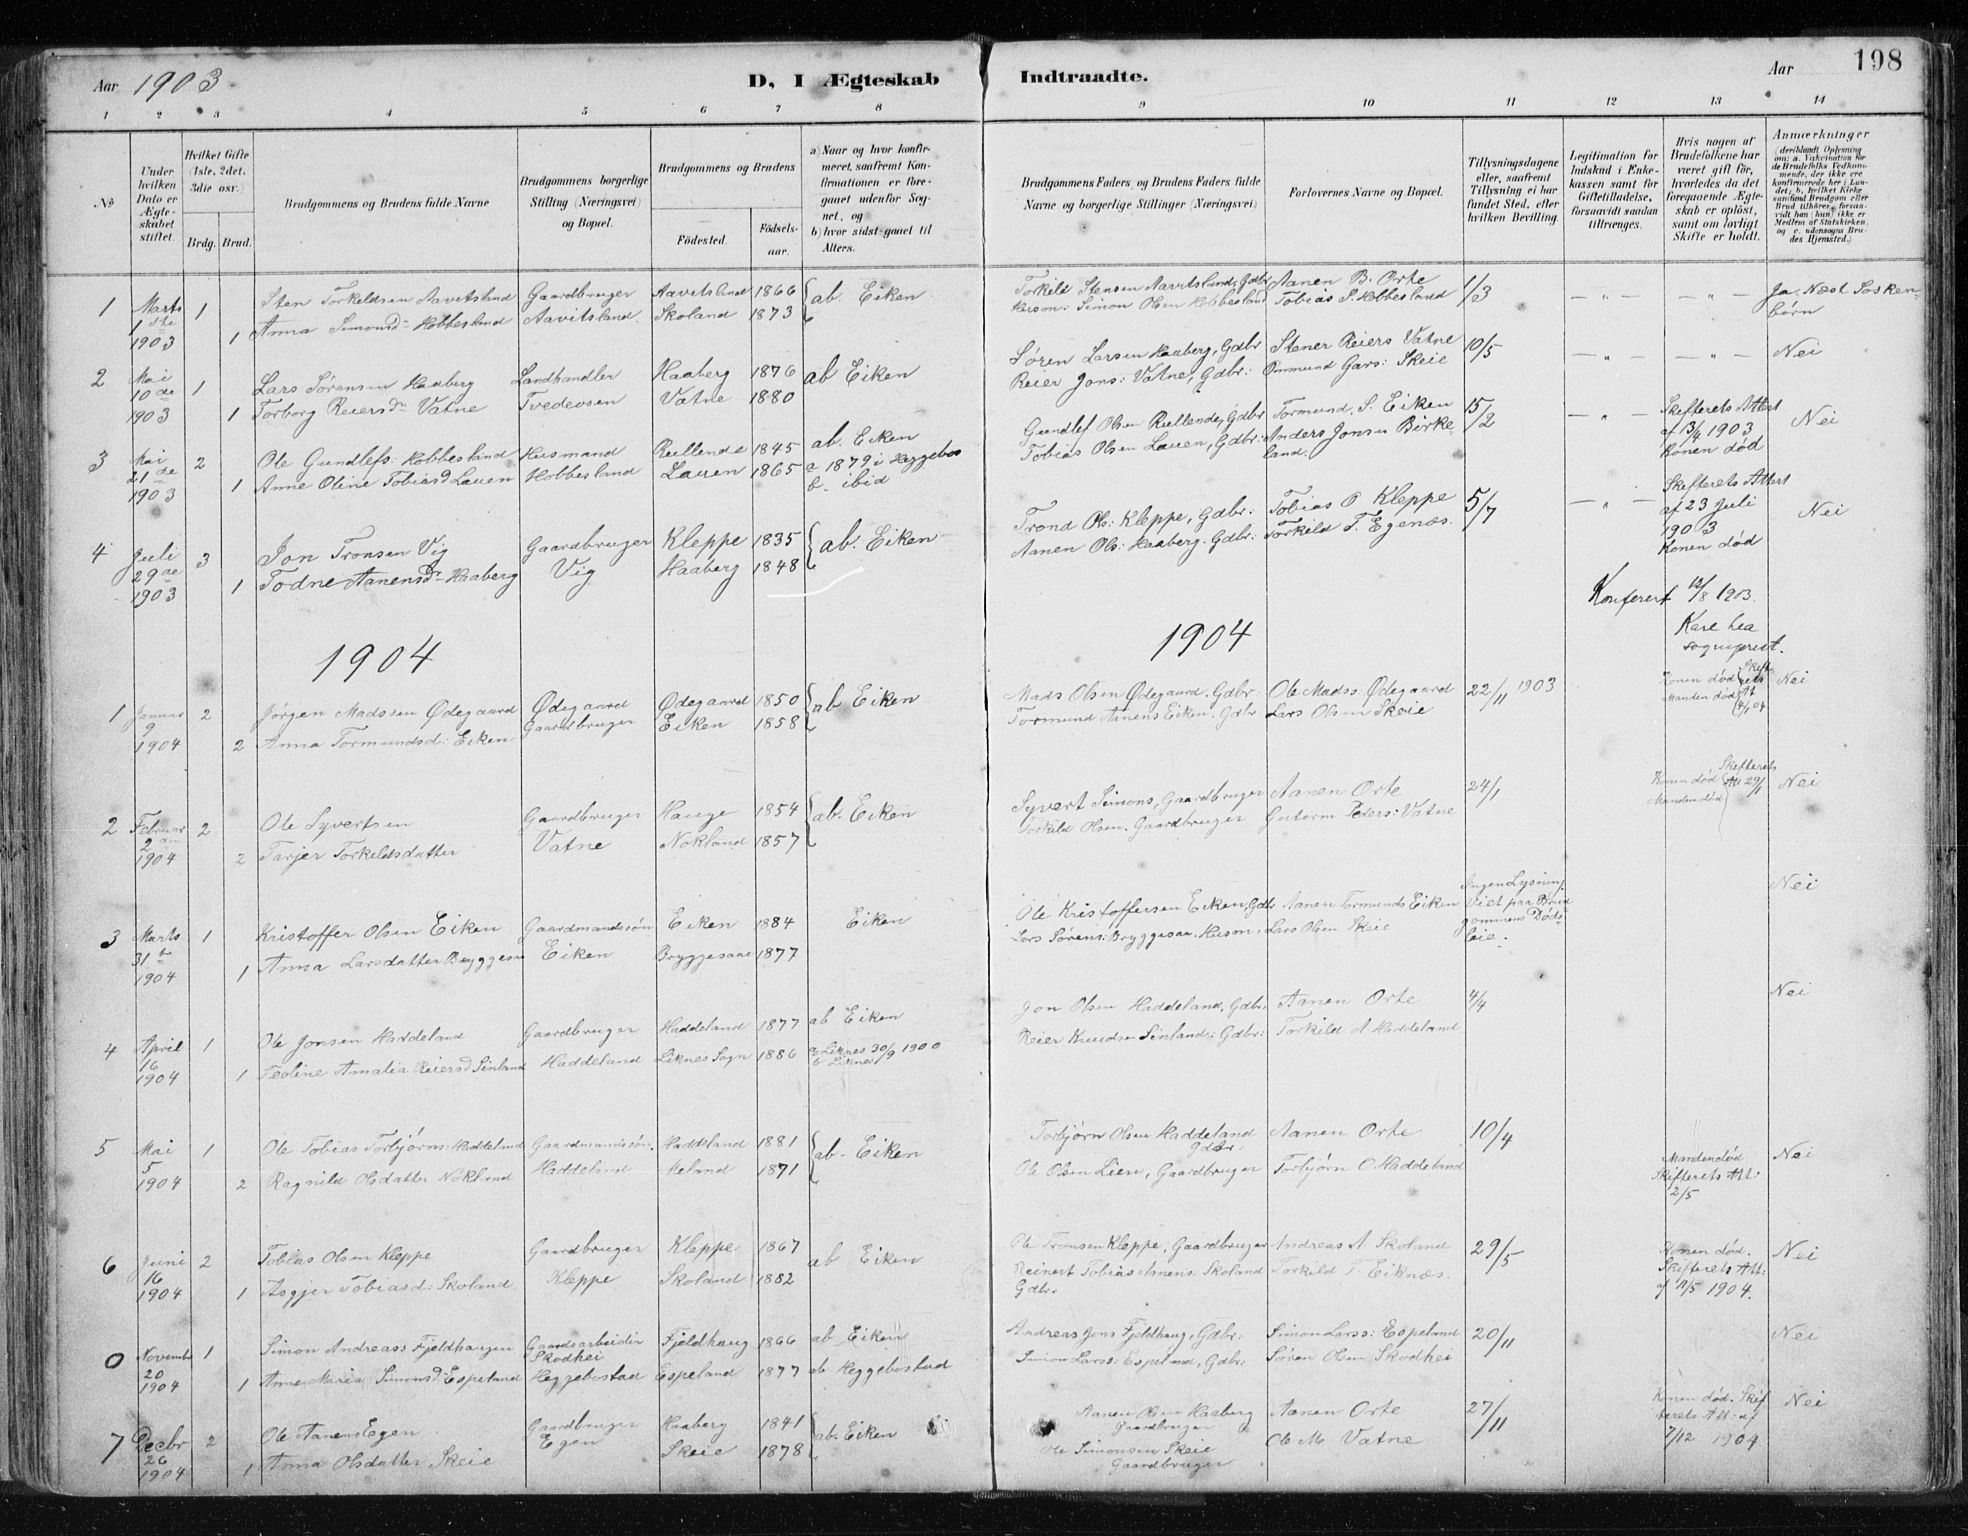 Aar 1903
D, I Ægteskab
Indtraadte.
Aar
198
1 2 3 4 5 6 7 8 9 10 11 12 13 14
No
Under hvilken Dato er Ægteskabet stiftet.
Hvilket Gifte (1ste, 2det, 3die osv.)
Brdg. Brud.
Brudgommens og Brudens fulde Navne
Brudgommens borgerlige Stilling (Næringsvei) og Bopæl.
Brudgommens og Brudens
Födested.
Födselsaar.
a) Naar og hvor konfirmeret, saafremt Konfirmationen er foregaaet udenfor Sognet, og
b) hvor sidst gaaet til Alters.
Brudgommens Faders og Brudens Faders fulde Navne og borgerlige Stillinger (Næringsvei)
Forlovernes Navne og Bopæl.
Tillysningsdagene eller, saafremt Tillysning ei har fundet Sted, efter hvilken Bevilling.
Legitimation for Indskud i Enkekassen samt for Giftetilladelse, forsaavidt saadan tiltrænges.
Hvis nogen af Brudefolkene har været gift för, hvorledes da det foregaaende Ægteskab er oplöst, samt om lovligt Skifte er holdt.
Anmærkninger
1 Marts 1ste 1903 1 Sten Torkeldsen Aavitsland Gaardbruger Aavitsland 1866 ab. Eiken Torkild Stensen Aavitsland, Gdbr Aanen B. Orte 1/3 Ja. Næst Søskenbörn
1 Anna Simonsd. Hobbesland Aavitsland Skoland 1873 Simon Olsen Hobbesland Tobias S. Hobbesland
2 Mai 10de 1903 1 Lars Sørensen Haaberg Landhandler Haaberg 1876 ab Eiken Søren Larsen Haaberg, Gdbr Stener Reiers Vatne 10/5 Nei
1 Torborg Reiersdr Vatne Tvedeosen Vatne 1880 Reier Jons: Vatne, Gdbr: Onmund Gars: Skeie
3 Mai 21de 1903 2 Ole Gundlefs: Hobbesland Husmand Rullende 1845 ab. Eiken Gundlef Olsen Rullende, Gdbr Tormund. S. Eiken 15/2 Skifterets Attest af 13/4 1903 Konen død Nei
1 Anne Oline Tobiasd Lauen Hobbesland Lauen 1865 a 1879 i Heggebos b. ibid Tobias Olsen Lauen, Gdbr: Anders Jonsen Birkeland.
4 Juli 29de 1903 3 Jon Tronsen Vig Gaardbruger Kleppe 1835 ab. Eiken Trond Ols: Kleppe, Gdbr: Tobias O Kleppe 5/7 Skifterets Attest af 23 Juli 1903 Konen død Nei
1 Todne Aanensdr Haaberg Vig Haaberg 1848 Aanen Ols: Haaberg. Gdbr: Torkild T. Egenæs.
Konferert 12/8 1903.
Kare Lea
sogneprest.
1904
1904
1 Januar 9 1904 2 Jørgen Madssen Ødegaard Ødegaard Ødegaard 1850 ab Eiken Mads Olsen Ødegaard. Gdbr: Ole Madss. Ødegaard 22/11 1903 Konen død Manden død Skifterets At 4/1 04 Nei
2 Anna Tormundsd: Eiken Gaardbruger Eiken 1858 Tormund Aanens Eiken. Gdbr Lars Olsen Skeie
2 Februar 2den 1904 2 Ole Syvertsen Gaardbruger Hauge 1854 ab. Eiken Syvert Simons, Gaardbruger Aanen Orte 24/1 Konen død Manden død Skifterets Att 29/1 Nei
2 Tarjer Torkildsdatter Vatne Nokland 1857 Torkild Olsen. Gaardbruger Guttorm Peders: Vatne
3 Marts 31te 1904 1 Kristoffer Olsen Eiken Gaardmandssøn Eiken 1884 Eiken Ole Kristoffersen Eiken, Gdbr Aanen Tormunds Eiken Ingen Lysning. Viet paa Brudgommens Dødsleie. Nei
1 Anna Larsdatter Bryggesaa Eiken Bryggesaa 1877 Lars Sørens: Bryggesaa. Husm: Lars Olsen Skeie
4 April 16 1904 1 Ole Jonsen Haddeland Gaardbruger Haddeland 1877 ab Eiken Jon Olsen Haddeland, Gdbr. Aanen Orte 4/4 Nei
1 Teoline Amalia Reiersd Sinland Haddeland Liknes Sogn 1886 a Liknes 30/9 1900 b Liknes Reier Knudsen Sinland: Gdbr: Torkild A Haddeland
5 Mai 5 1904 1 Ole Tobias Torbjörns: Haddeland Gaardmandssøn. Haddeland 1881 ab. Eiken Torbjörn Olsen Haddeland Gdbr: Aanen Orte 10/4 Manden død Skifterets Att: 2/5 Nei
2 Ragnild Olsdatter Nokland Haddeland Meland 1871 Ole Olsen Lien, Gaardbruger Torbjörn O. Haddeland
6 Juni 16 1904 2 Tobias Olsen Kleppe Gaardbruger Kleppe 1867 ab Eiken Ole Tronsen Kleppe, Gaardbruger Andreas A. Skoland 29/5 Konen død. Skifterets Att: af 11/5 1904. Nei
1 Asgjer Tobiasd: Skoland Kleppe Skoland 1882 Reinert Tobias Asnens Skoland Gdbr. Torkild T. Eiknæs.
0 Novembr 20 1904 1 Simon Andreass Fjeldhaugen Gaardsarbeider Skodhei Fjeldhaug 1866 ab Eiken Andreas Jons Fjeldhaug, Gdbr: Simon Larss: Espeland 20/11 Nei
1 Anne Maria Simonsd Espeland Heggebostad Espeland 1877 ab Heggebostad Simon Larss: Espeland, Gdbr. Søren Olsen Skodhei
7 Decbr 26 1904 2 Ole Aanens Egen Gaardbruger Haaberg 1841 ab. Eiken Aanen Olsen Haaberg Gaardbruger Aanen Orte 27/11 Konen død. Skifterets Att: af 7/12 1904 Nei
1 Anna Olsdatter Skeie Egen Skeie 1878 Ole Simonsen Skeie Gaardbruger Ole M. Vatne